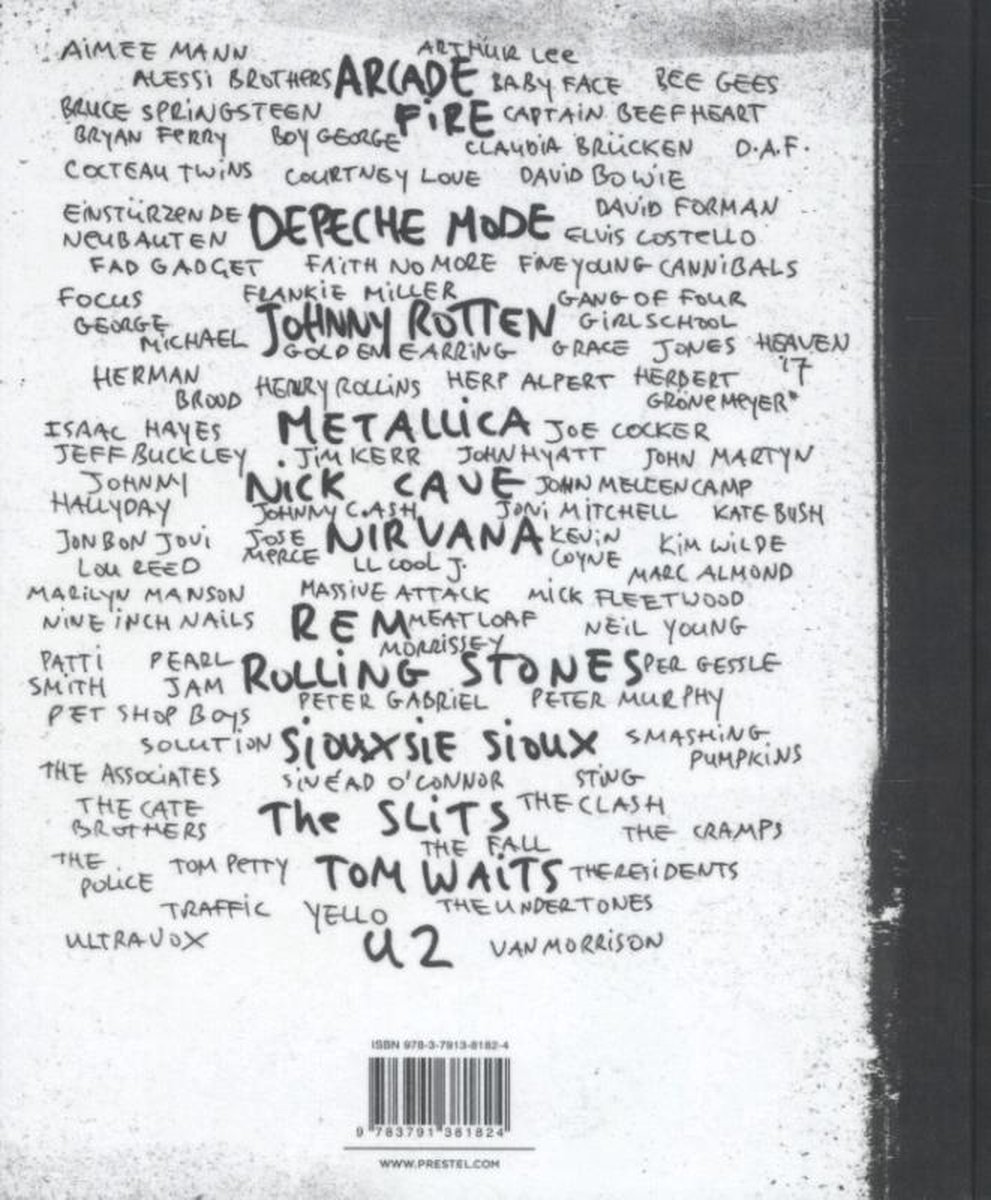 AIMEE MANN ARTHUR LEE
ALESSI BROTHERS ARCADE BABY FACE BEE GEES
BRUCE SPRINGSTEEN FIRE CAPTAIN BEEFHEART
BRYAN FERRY BOY GEORGE CLAUDIA BRÜCKEN D.A.F.
COCTEAU TWINS COURTNEY LOVE DAVID BOWIE
EINSTÜRZENDE DEPECHE MODE DAVID FORMAN
NEUBAUTEN ELVIS COSTELLO
FAD GADGET FAITH NO MORE FINE YOUNG CANNIBALS
FOCUS FRANKIE MILLER GANG OF FOUR
GEORGE JOHNNY ROTTEN GIRLSCHOOL
MICHAEL GOLDEN EARRING GRACE JONES HEAVEN
HERMAN HENRY ROLLINS HERP ALPERT HERBERT 17
BROOD GRÖNEMEYER"
ISAAC HAYES METALLICA JOE COCKER
JEFF BUCKLEY JIM KERR JOHN HYATT JOHN MARTYN
JOHNNY NICK CAVE JOHN MELLENCAMP
HALLYDAY JOHNNY CASH JONI MITCHELL KATE BUSH
JON BON JOVI JOSE NIRVANA KEVIN KIM WILDE
LOU REED MERCE LL COOL J. COYNE MARC ALMOND
MARILYN MANSON MASSIVE ATTACK MICK FLEETWOOD
NINE INCH NAILS REM MEATLOAF NEIL YOUNG
MORRISSEY
PATTI PEARL ROLLING STONES PER GESSLE
SMITH JAM PETER GABRIEL PETER MURPHY
PET SHOP BOYS
SOLUTION SIOUXSIE SIOUX SMASHING
PUMPKINS
THE ASSOCIATES SINÉAD O'CONNOR STING
THE CATE THE SLITS THE CLASH
BROTHERS THE CRAMPS
THE FALL
THE TOM PETTY TOM WAITS THE RESIDENTS
POLICE
TRAFFIC YELLO THE UNDERTONES
ULTRAVOX U2 VAN MORRISON
ISBN 978-3-7913-8182-4
9 783791 381824
WWW.PRESTEL.COM